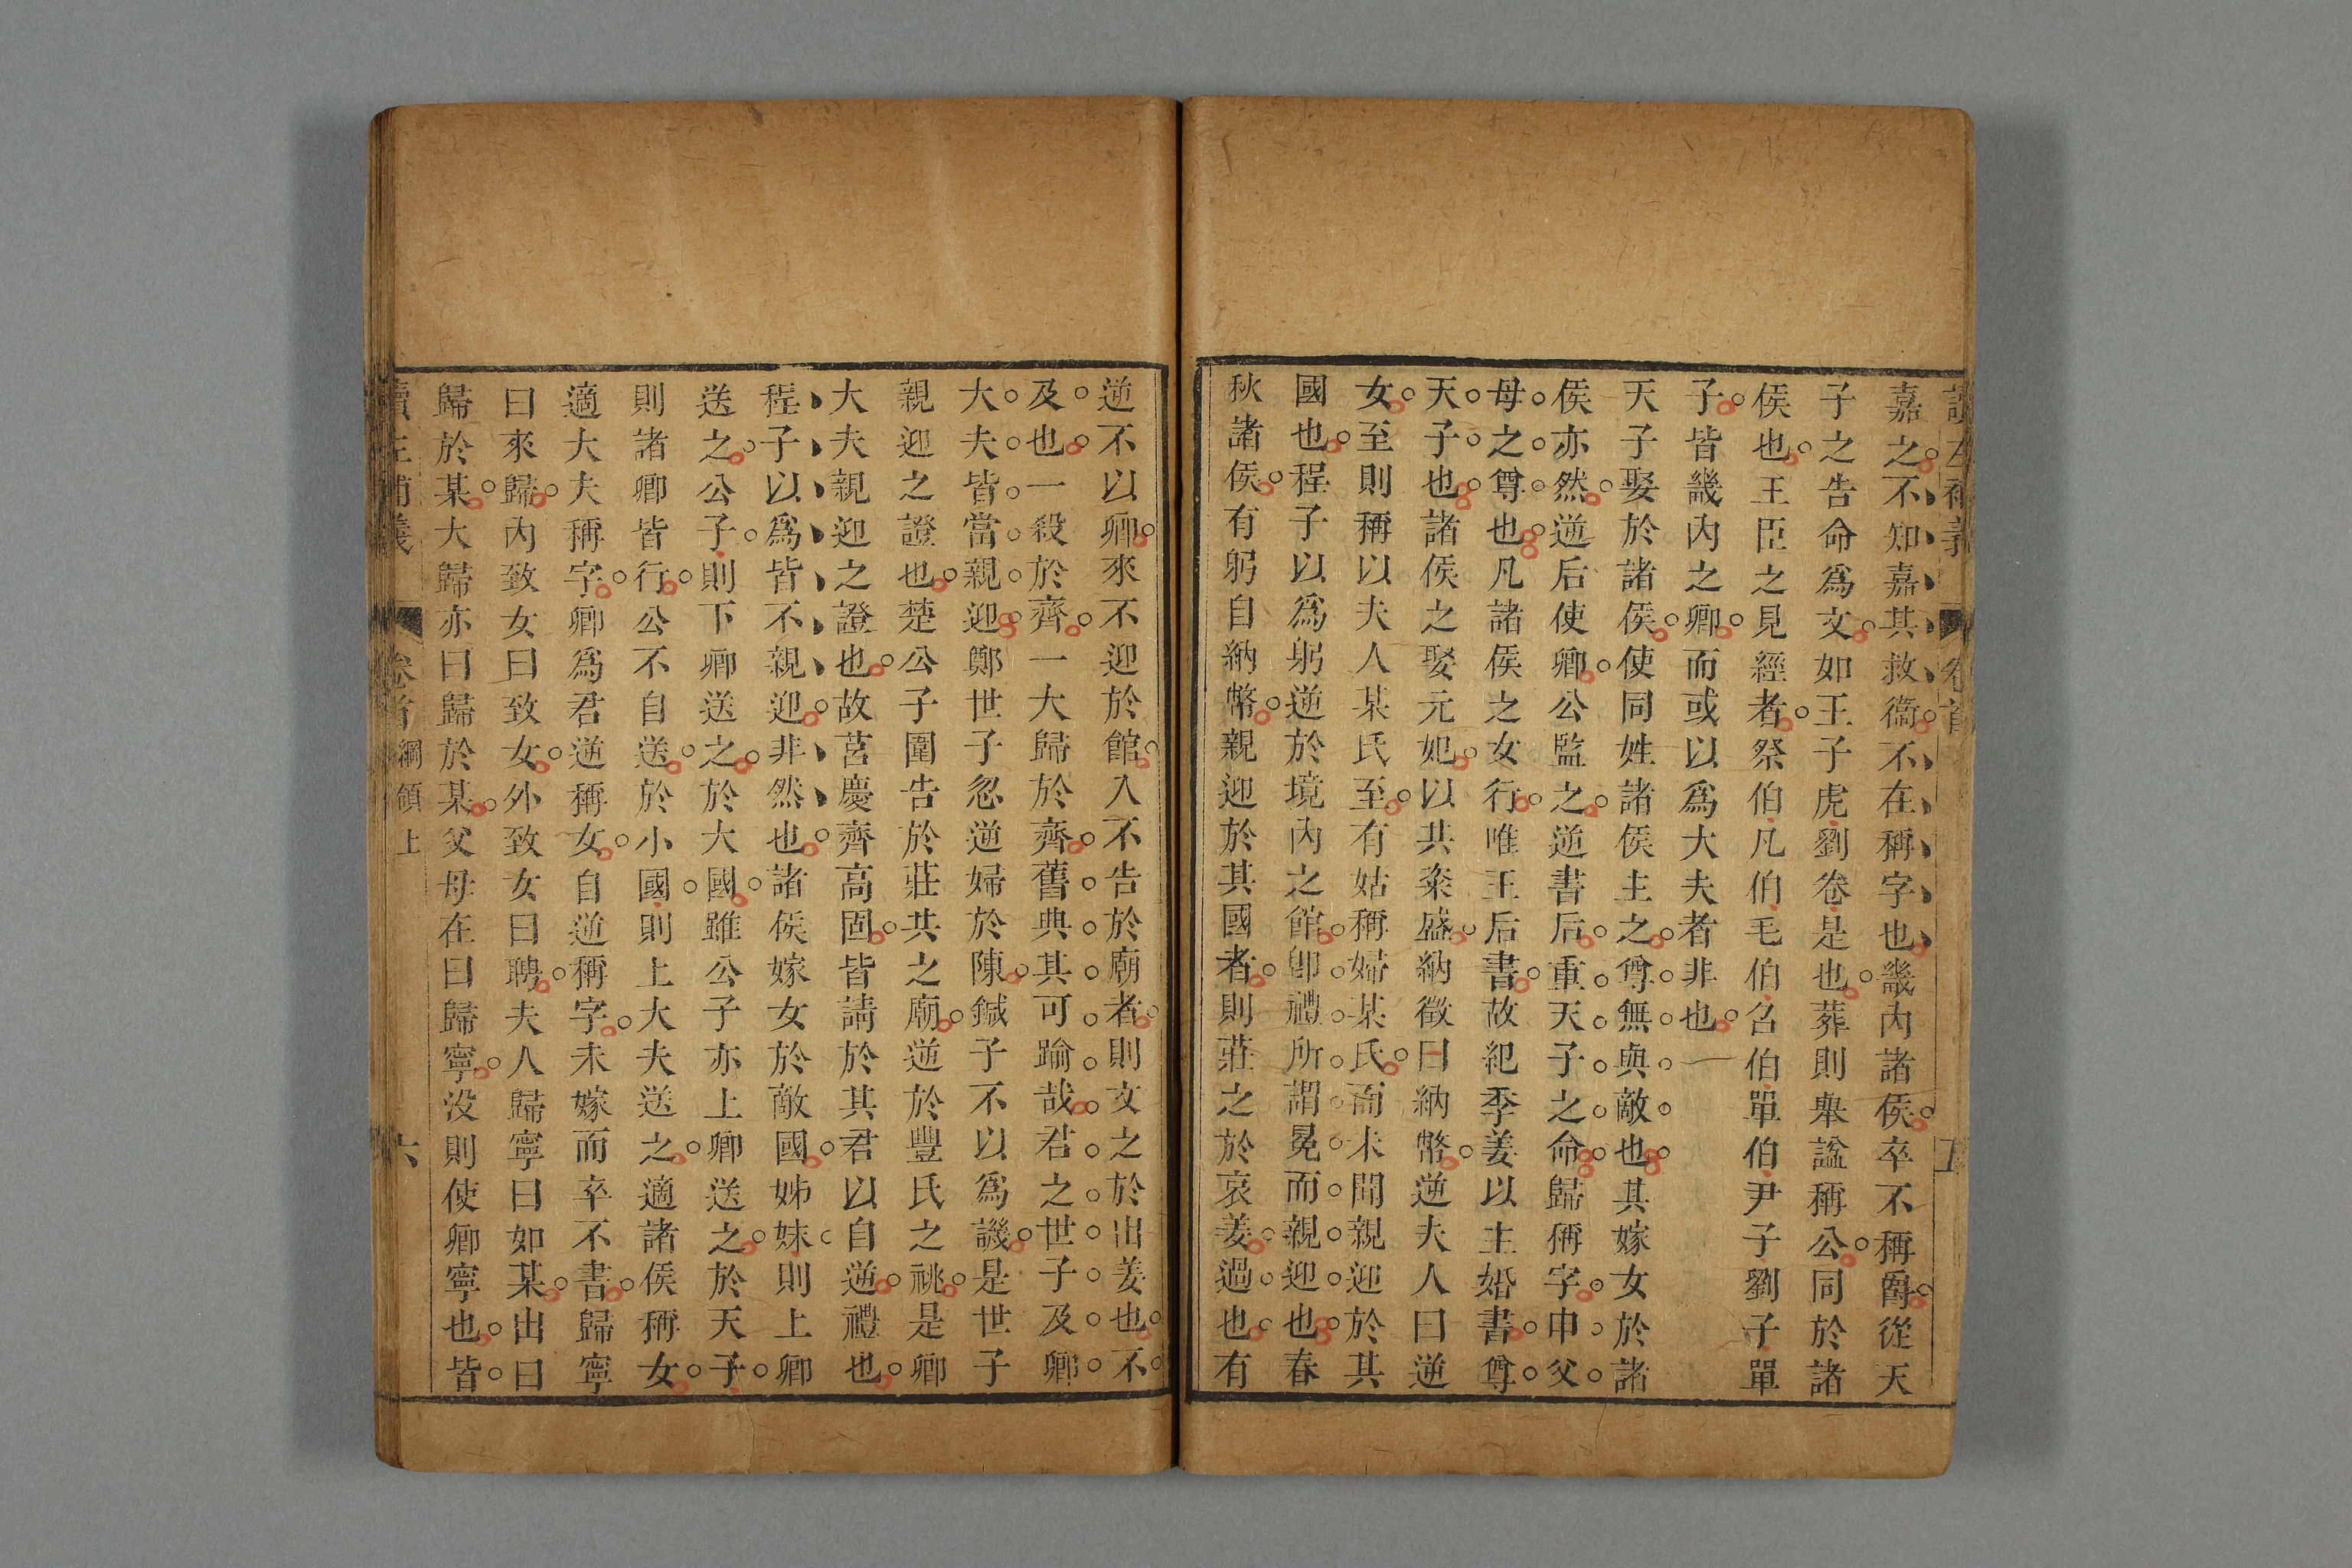 嘉之不知嘉其救衞不在稱字也畿內諸侯卒不稱爵從天
子之告命爲文如王子虎劉卷是也葬則舉諡稱公同於諸
侯也王臣之見經者祭伯凡伯毛伯召伯單伯尹子劉子單
子皆畿內之卿而或以爲大夫者非也
天子娶於諸侯使同姓諸侯主之尊無與敵也其嫁女於諸
侯亦然逆后使卿公監之逆書后重天子之命歸稱字申父
母之尊也凡諸侯之女行唯王后書故紀季姜以主婚書尊
天子也諸侯之娶元妃以共粢盛納徵曰納幣逆夫人曰逆
女至則稱以夫人某氏至有姑稱婦某氏而未聞親迎於其
國也程子以爲躬逆於境內之館卽禮所謂冕而親迎也春
秋諸侯有躬自納幣親迎於其國者則莊之於哀姜過也有
逆不以卿來不迎於館入不告於廟者則文之於出姜也不
及也一殺於齊一大歸於齊舊典其可踰哉君之世子及卿
大夫皆當親迎鄭世子忽逆婦於陳鍼子不以爲譏是世子
親迎之證也楚公子圍告於莊共之廟逆於豐氏之祧是卿
大夫親迎之證也故莒慶齊高固皆請於其君以自逆禮也
程子以爲皆不親迎非然也諸侯嫁女於敵國姊妹則上卿
送之公子則下卿送之於大國雖公子亦上卿送之於天子
則諸卿皆行公不自送於小國則上大夫送之適諸侯稱女
適大夫稱字卿爲君逆稱女自逆稱字未嫁而卒不書歸寧
曰來歸內致女曰致女外致女曰聘夫人歸寧曰如某出曰
歸於某大歸亦曰歸於某父母在曰歸寧没則使卿寧也皆
讀左補義 卷首 綱領上 六